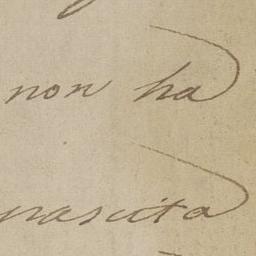 non ha
nascita